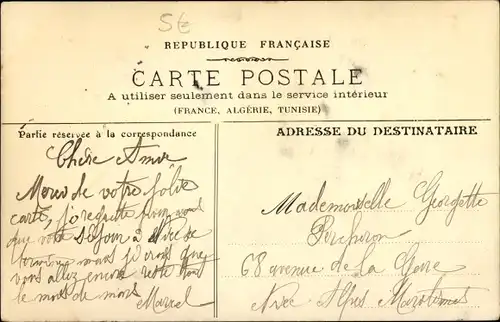 5€
REPUBLIQUE FRANÇAISE
CARTE POSTALE
A utiliser seulement dans le service intérieur
(FRANCE, ALGÉRIE, TUNISIE)
Partie réservée à la correspondance
ADRESSE DU DESTINATAIRE
Chère Amie
Merci de votre jolie
carte, je regrette
que votre séjour à Nice se
termine mais je crois que
vous allez encore rester tout
le mois de mars
Marcel
Mademoiselle Georgette
Percheron
68 avenue de la Gare
Nice Alpes Maritimes